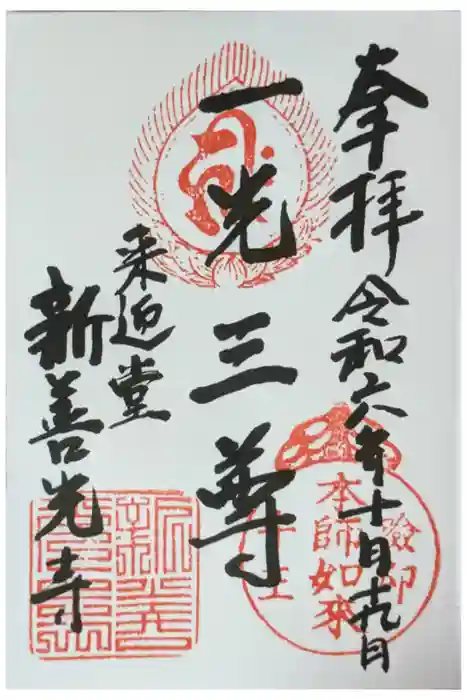 奉拝 令和六年十月十九日
一光三尊
来迎堂
新善光寺
本師如来